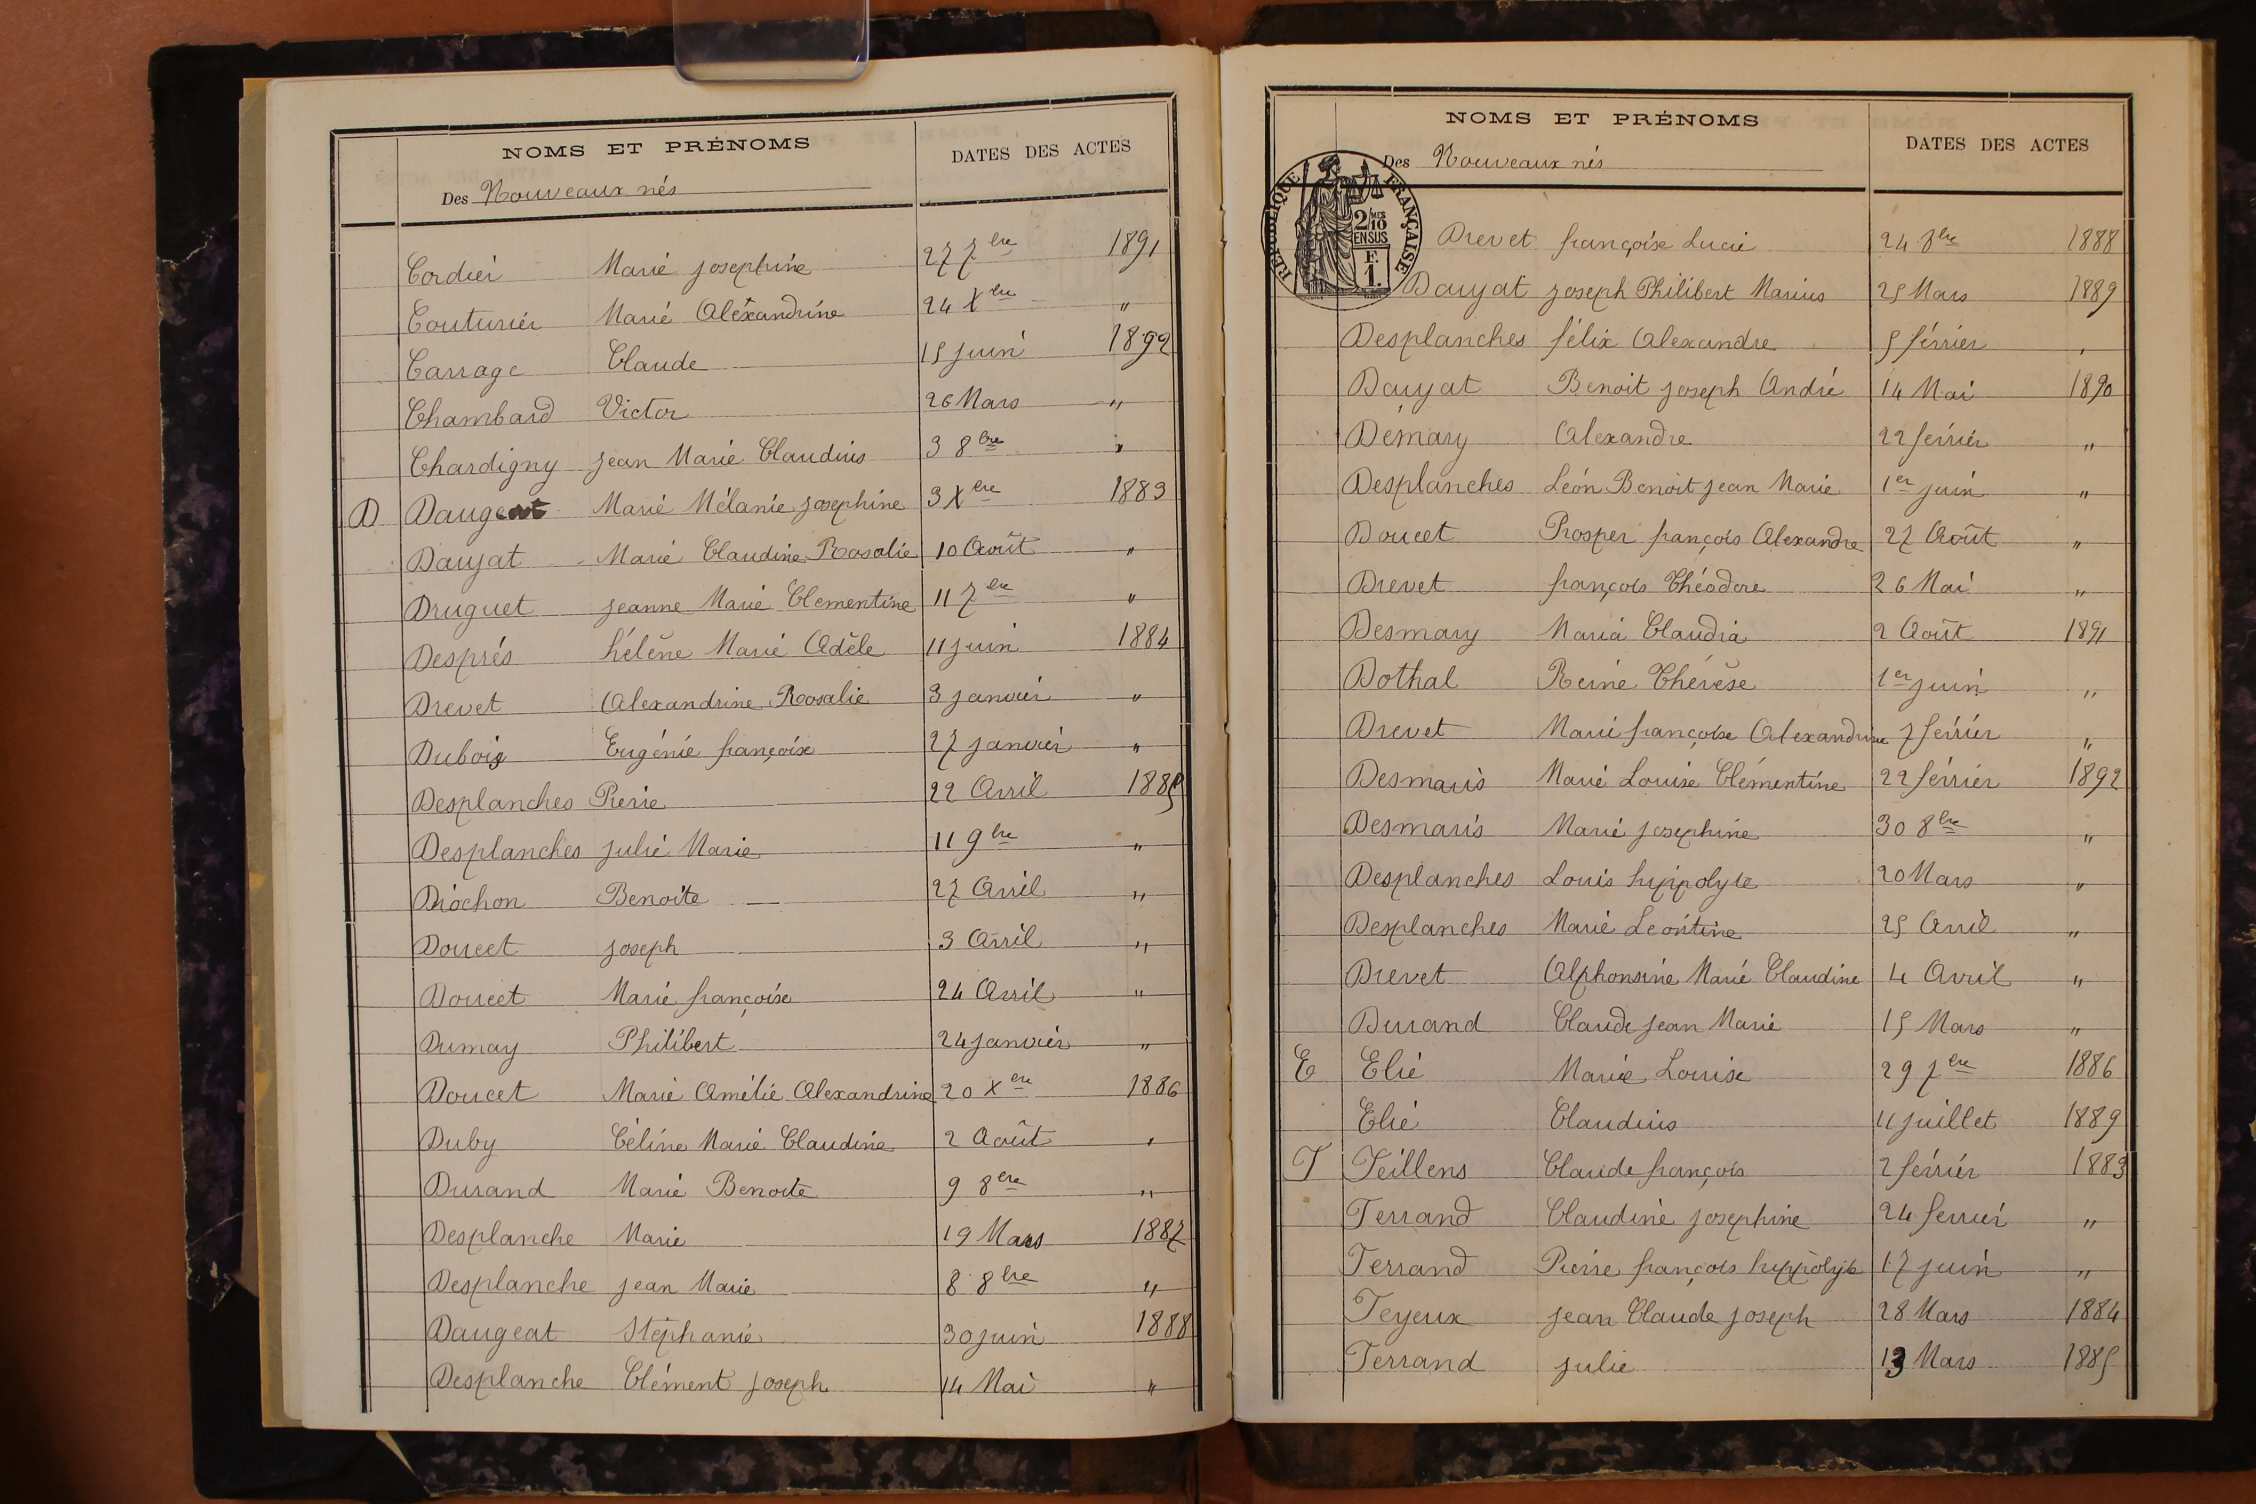 NOMS ET PRÉNOMS
DATES DES ACTES
Des Nouveaux nés
Cordier Marie Josephine 27 7bre 1891
Couturier Marie Aléxandrine 24 Xbre "
Carrage Claude 15 juin 1892
Chambard Victor 26 Mars "
Chardigny Jean Marie Claudius 3 8bre "
D Daugeat Marie Mélanie Josephine 3 Xbre 1883
Daujat Marie Claudine Rosalie 10 Août "
Druguet Jeanne Marie Clementine 11 7bre "
Després hélène Marie Adèle 11 juin 1884
Drevet Alexandrine Rosalie 3 janvier "
Dubois Eugénie françoise 27 janvier "
Desplanches Pierre 22 Avril 1885
Desplanches Julie Marie 11 9bre "
Diochon Benoite 27 Avril "
Doucet Joseph 3 Avril "
Doucet Marie françoise 24 Avril "
Dumay Philibert 24 janvier "
Doucet Marie Amélie Alexandrine 20 Xbre 1886
Duby Céline Marie Claudine 2 Août "
Durand Marie Benoite 9 8bre "
Desplanche Marie 19 Mars 1887
Desplanche Jean Marie 8 8bre "
Daugeat Stéphanie 30 juin 1888
Desplanche Clément Joseph 14 Mai "
NOMS ET PRÉNOMS
DATES DES ACTES
Des Nouveaux nés
RÉPUBLIQUE FRANÇAISE
2/10MES
EN SUS
F.
1.
Drevet françoise Lucie 24 8bre 1888
Daujat Joseph Philibert Marius 25 Mars 1889
Desplanches félix Alexandre 5 février "
Daujat Benoit Joseph André 14 Mai 1890
Démary Alexandre 22 février "
Desplanches Léon Benoit Jean Marie 1er juin "
Doucet Prosper françois Alexandre 27 Août "
Drevet françois Théodore 26 Mai "
Desmary Maria Claudia 2 Août 1891
Dothal Reine Thérèse 1er juin "
Drevet Marie françoise Alexandrine 7 février "
Desmaris Marie Louise Clémentine 22 février 1892
Desmaris Marie Josephine 30 8bre "
Desplanches Louis hippolyte 20 Mars "
Desplanches Marie Leóntine 25 Avril "
Drevet Alphonsine Marie Claudine 4 Avril "
Durand Claude Jean Marie 15 Mars "
E Elie Marie Louise 29 7bre 1886
Elie Claudius 11 juillet 1889
F Feillens Claude françois 2 février 1883
Ferrand Claudine Josephine 24 fevrier "
Ferrand Pierre françois hippolyte 17 juin "
Feyeux Jean Claude Joseph 28 Mars 1884
Ferrand Julie 13 Mars 1885